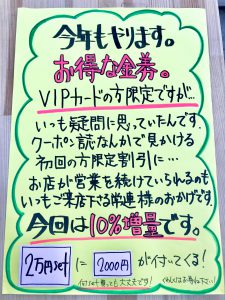 今年もやります。
お得な金券。
VIPカードの方限定ですが、
いつも疑問に思っていたんです。
クーポン誌なんかで見かける
初回の方限定割引に…
お店が営業を続けていられるのも
いつもご来店下さる常連様のおかげです。
今回は10%増量です。
2万円set に 2000円 が付いてくる!
何set買っても大丈夫です!